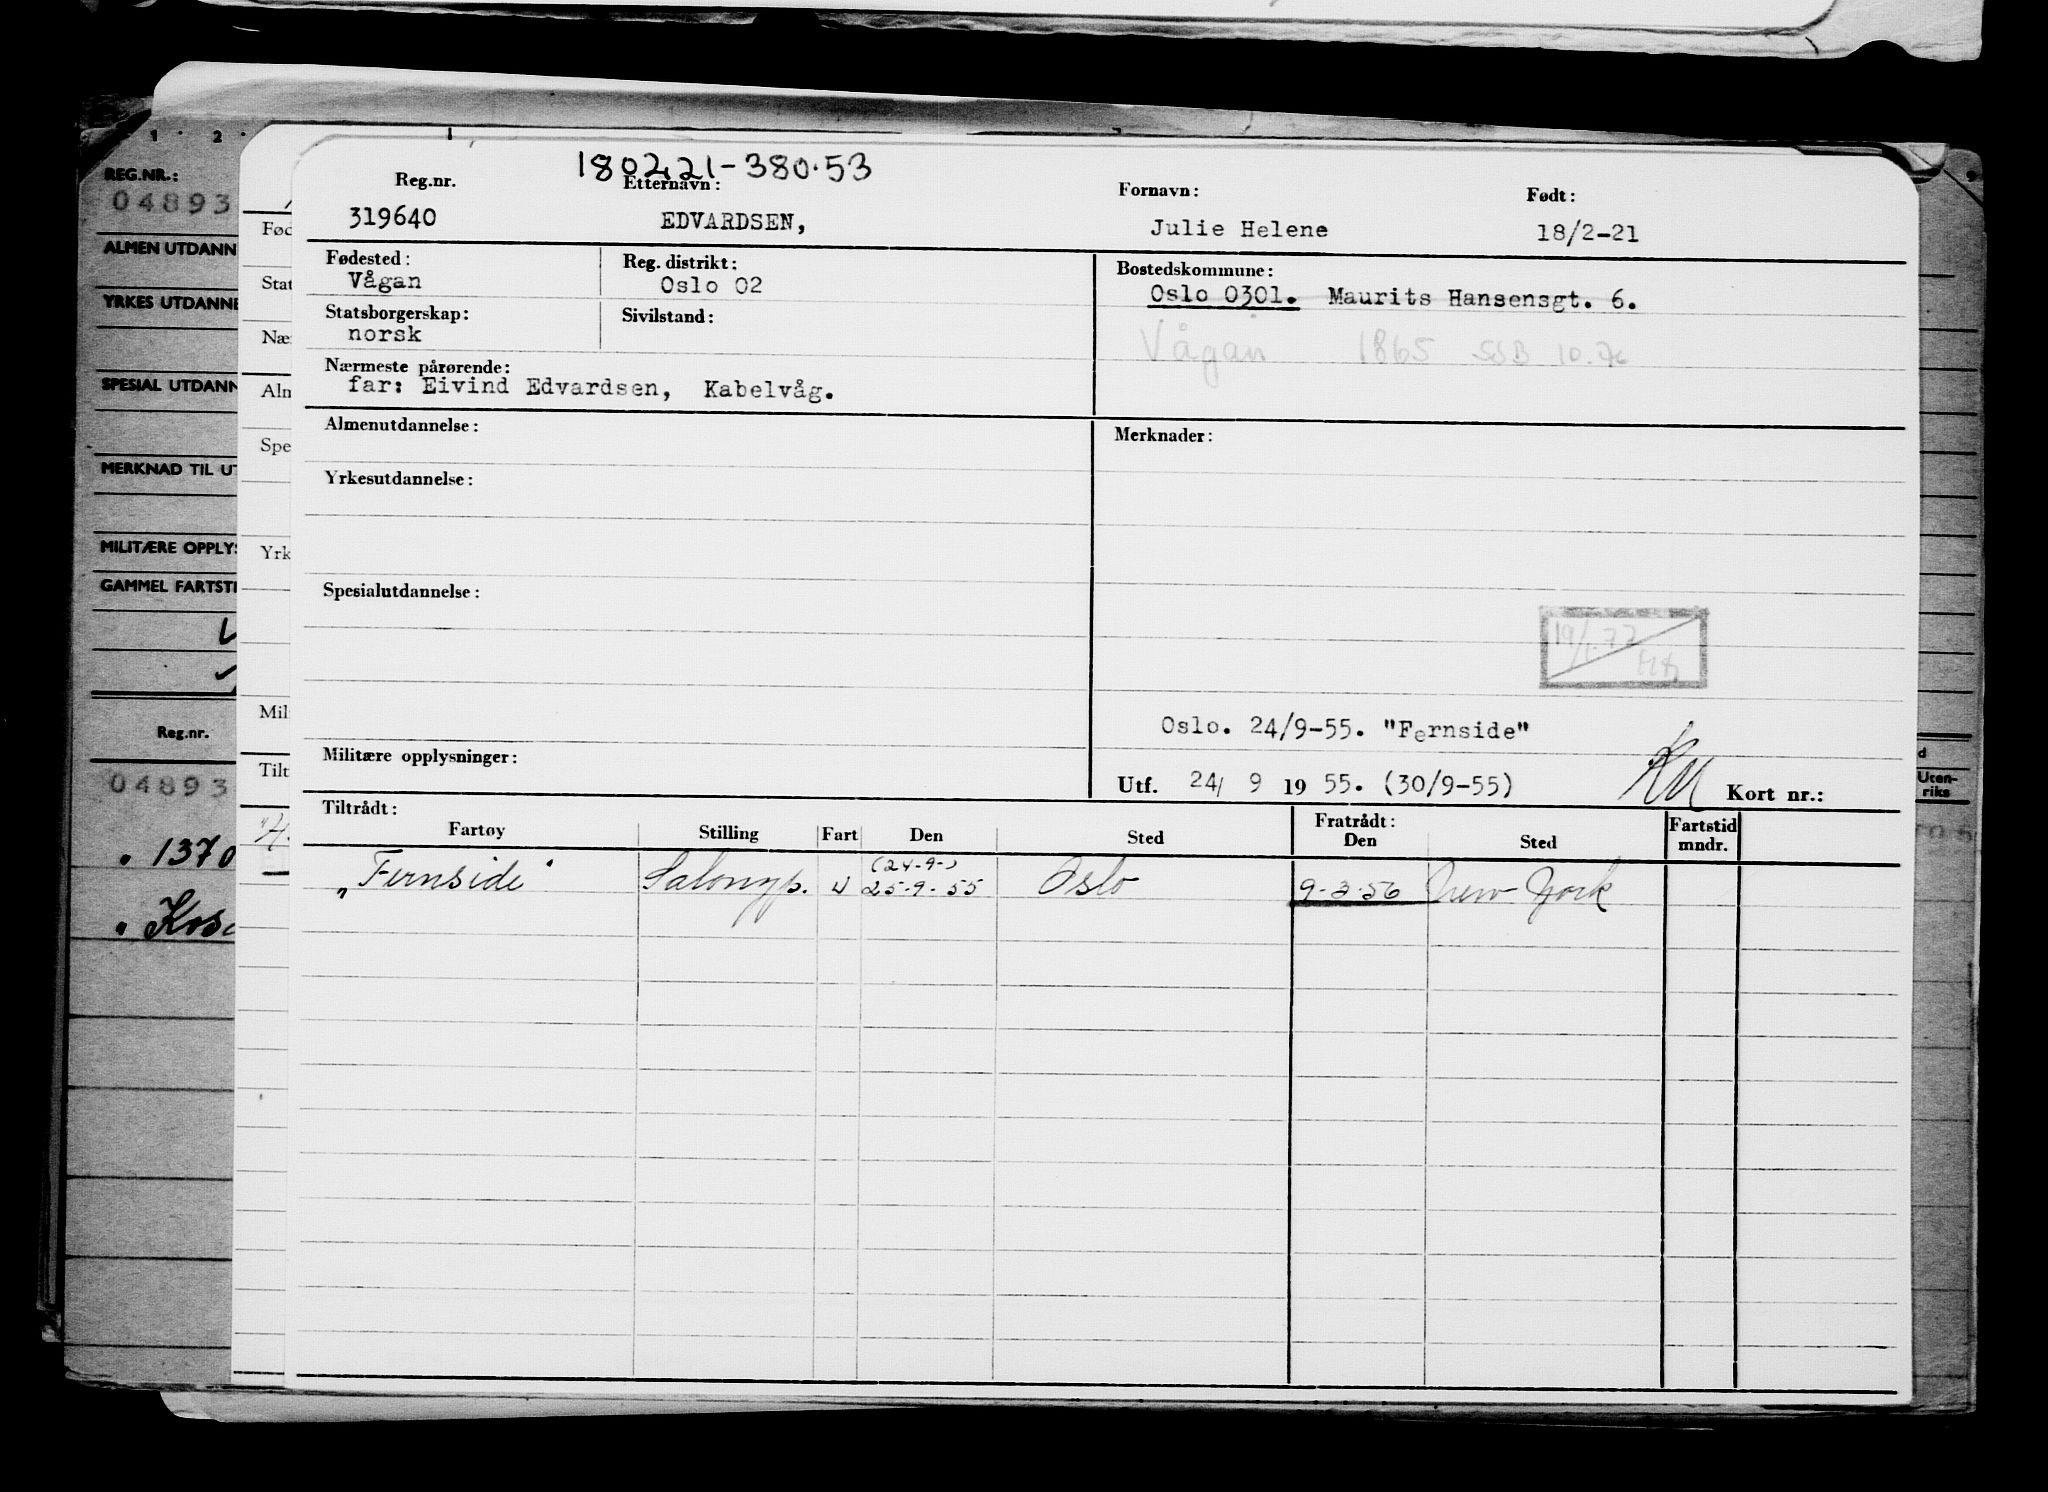 180221-380.53
Reg.nr. Etternavn: Fornavn: Født:
319640 EDVARDSEN, Julie Helene 18/2-21
Fødested: Reg. distrikt: Bostedskommune:
Vågan Oslo 02 Oslo 0301. Maurits Hansensgt. 6.
Statsborgerskap: Sivilstand:
norsk
Vågan 1865 SSB 10.76
Nærmeste pårørende:
far: Eivind Edvardsen, Kabelvåg.
Almenutdannelse: Merknader:
Yrkesutdannelse:
Spesialutdannelse:
19/1.77
Oslo. 24/9-55. "Fernside"
Militære opplysninger:
Utf. 24/ 9 19 55. (30/9-55) Kort nr.:
Tiltrådt: Fratrådt: Fartstid
Fartøy Stilling Fart Den Sted Den Sted mndr.
(24-9-)
"Fernside" Salongp. U 25-9-55 Oslo 9-3-56 New York
1 2
REG.NR.:
04893
ALMEN UTDANN
YRKES UTDANNE
SPESIAL UTDANN
MERKNAD TIL UT
MILITÆRE OPPLYS
GAMMEL FARTSTI
Reg.nr.
04893
1370
Fød
Stat
Nær
Alm
Spe
Yrk
Mil
Tilt
d
Uten-
riks